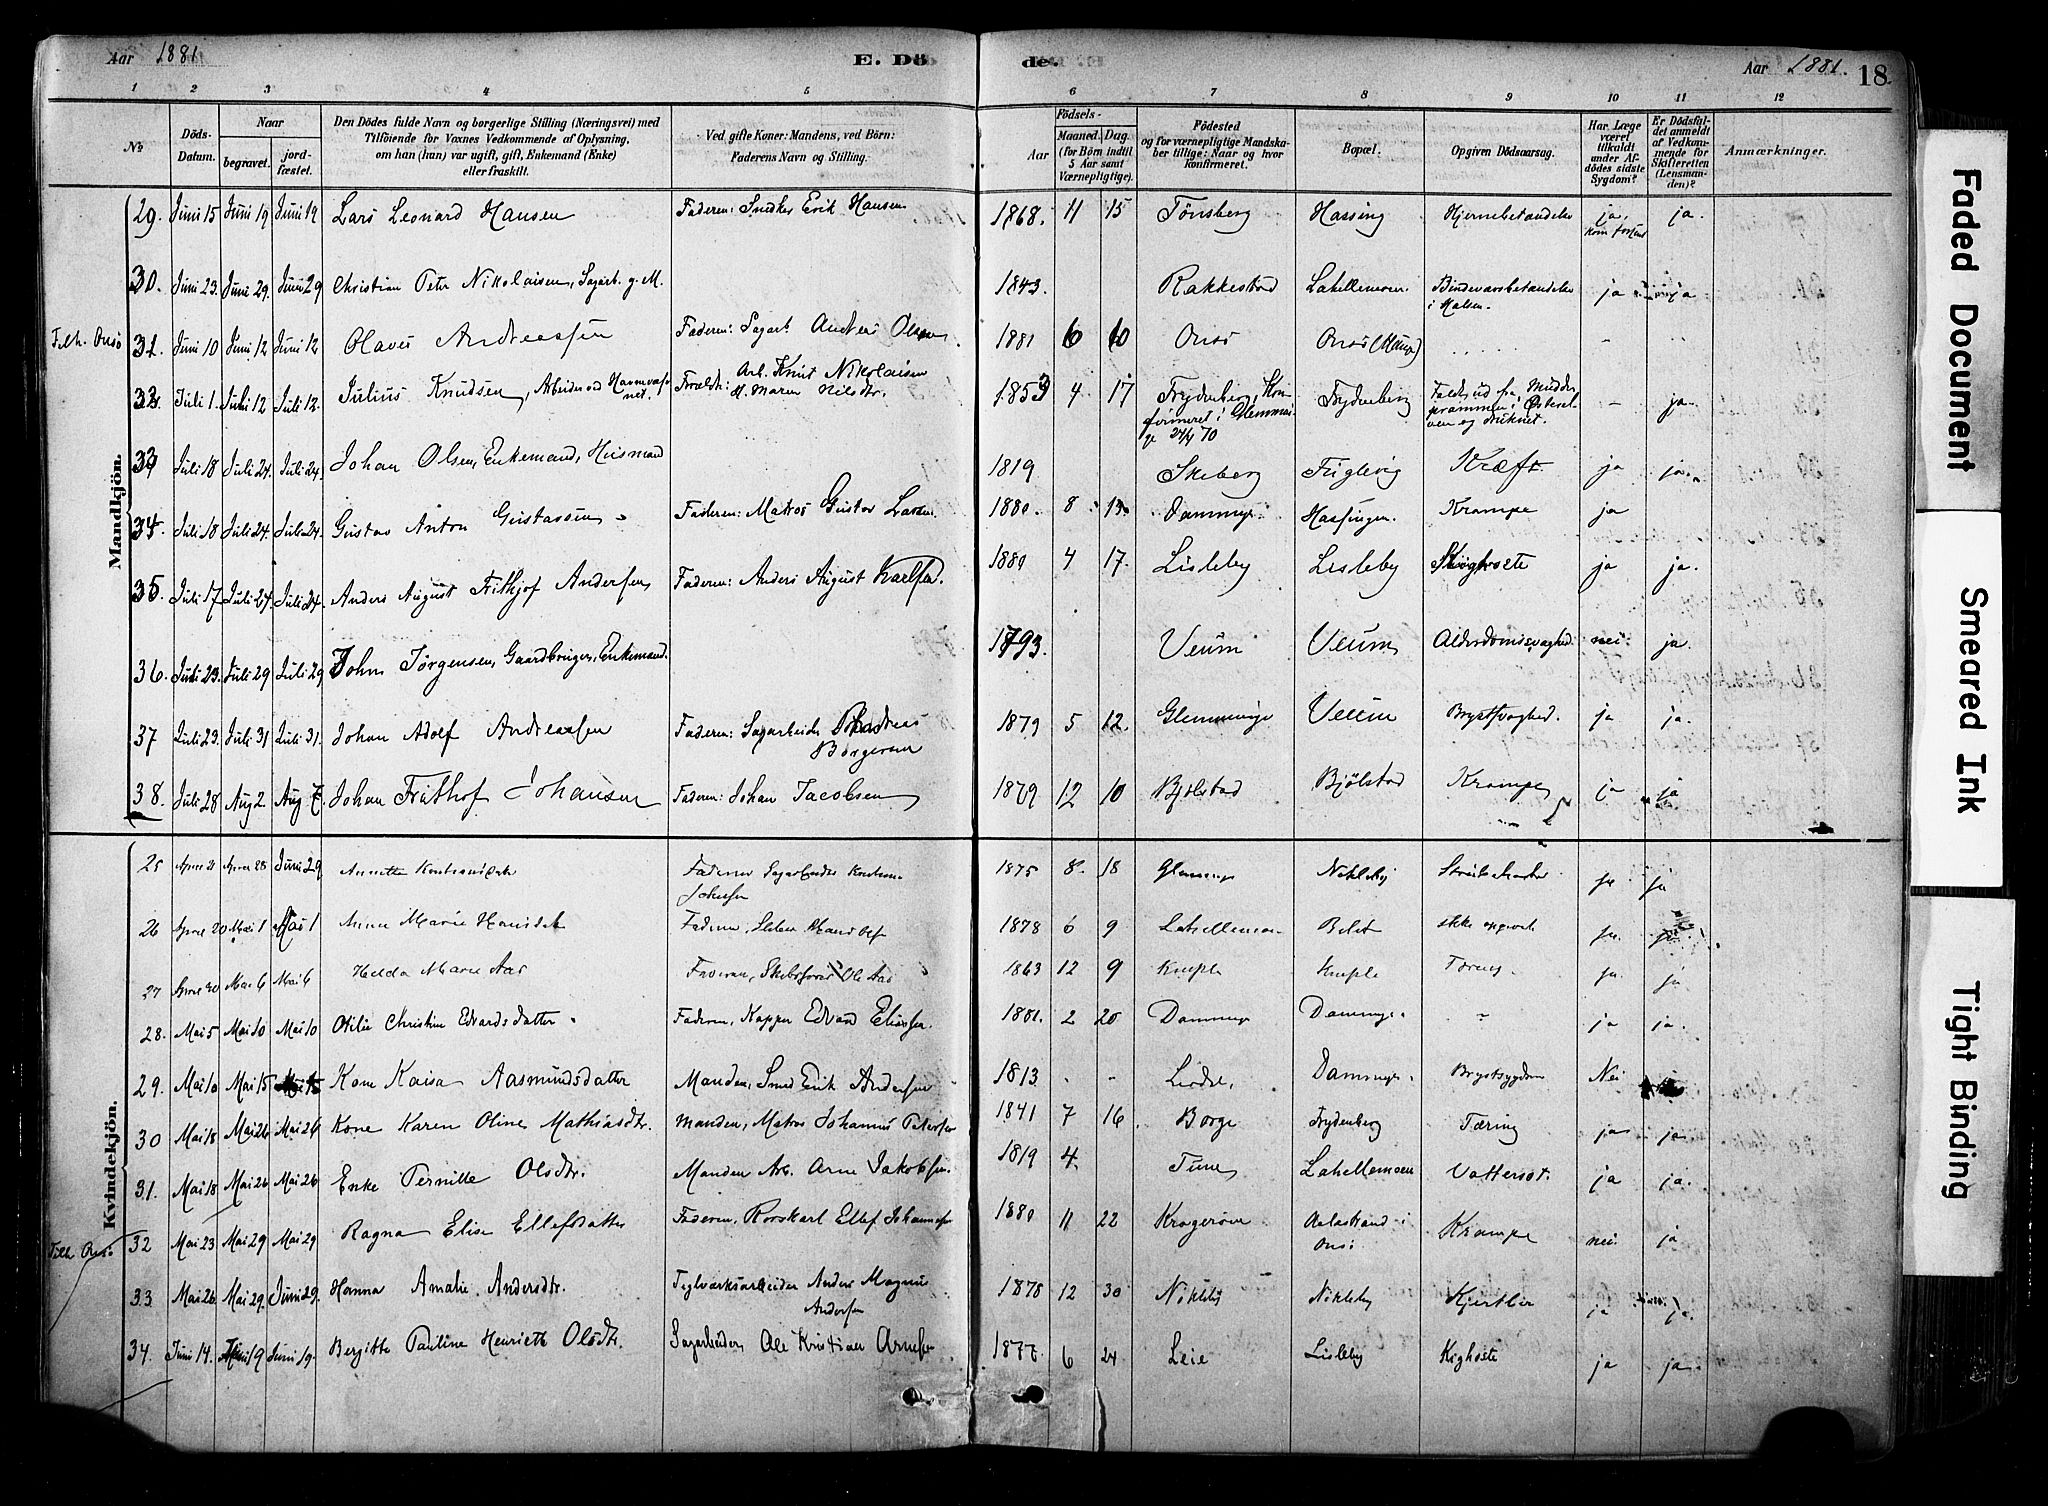 Aar 1881 E. Dö de. Aar 1881. 18
1 2 3 4 5 6 7 8 9 10 11 12
№ Döds-Datum. Naar begravet. jord-fæstet. Den Dödes fulde Navn og borgerlige Stilling (Næringsvei) med Tilföiende for Voxnes Vedkommende af Oplysning, om han (hun) var ugift, gift, Enkemand (Enke) eller fraskilt. Ved gifte Koner: Mandens, ved Börn: Faderens Navn og Stilling. Födsels- Aar Maaned. Dag. (for Börn indtil 5 Aar samt Værnepligtige). Födested og for værnepligtige Mandska-ber tillige: Naar og hvor konfirmeret. Bopæl. Opgiven Dödsaarsag. Har Læge været tilkaldt under Af-dödes sidste Sygdom? Er Dödsfal-det anmeldt af Vedkom-mende for Skifteretten (Lensman-den)? Anmærkninger.
Mandkjön.
29. Juni 15 Juni 19 Juni 19 Lars Leonard Hansen Faderen: Snedker Erik Hansen 1868. 11 15 Tönsberg Hassing Hjernebetændelse ja. ja.
30. Juni 23. Juni 29. Juni 29 Christian Peter Nikolaisen, Sagarb. g. M. 1843. Rakkestad Lahellemoen. Bindevævsbetændelse i Halsen. ja ja
31. Juni 10 Juni 12 Juni 12 Olaves Andreassen Faderen: Sagarb. Anders Olsen 1881 6 10 Onsö Onsö -
32. Juli 1. Juli 12 Juli 12. Julius Knudsen, Arbeider ved Havnevæsenet. Forældr: Arb. Knut Nikolaisen H. Maren Nilsdtr. 1853 4. 17 Trydenberg, Konfirmeret i Glemminge 24/4 70 Trydenberg Faldt ud fra Mudderprammen i Österelven og druknet. - ja.
33 Juli 18 Juli 24. Juli 24. Johan Olsen, Enkemand, Husmand 1819 Skeberg Fuglevig Kræft ja ja.
34. Juli 18 Juli 24. Juli 24. Gustav Anton Gustavsen Faderen: Matros Gustav Larsen. 1880. 8 Damminge Hassingen. Krampe ja
35. Juli 17 Juli 24. Juli 24. Anders August Frithjof Andersen Faderen: Anders August Karlsen. 1880 4 17. Lisleby Lisleby ja ja.
36. Juli 23. Juli 29 Juli 29 John Jörgensen, Gaardbruger, Enkemand. 1793. Veum Veum Alderdomssvaghed. nei ja.
37 Juli 23. Juli 31 Juli 31. Johan Adolf Andreassen Faderen: Sagarbeider Andreas Borgersen 1879 5 12. Glemminge Veum Brystsvaghed. ja ja.
38. Juli 28 Aug 2 Aug 7. Johan Frithof Johansen Faderen: Johan Jacobsen 1879 12 10 Bjölstad Bjölstad Krampe ja ja
Kvindekjön.
25 April 21 April 28 Juni 29 Annette 1875 8. 18 Glemminge Nökleby ja ja
26 April 20 Mai 1 Mai 1 Anne Marie Hansdtr Faderen, 1878 6 9 Lahellemoen ikke opgivet ja. ja
27 April 30 Mai 6 Mai 6 Hilda Marie Aas Faderen, Skibsförer Ole Aas 1863 12 9 Kniple Kniple Tæring. ja. ja
28. Mai 5 Mai 10 Mai 10 Otilie Christine Edvardsdatter Faderen, Kapper Edvard Eliassen. 1881. 2 20 Damminge Damminge. - ja ja.
29. Mai 10 Mai 15 Mai 15 Kone Kaisa Aasmundsdatter Manden, Smed Erik Andersen 1813 - - Damminge. Brystsygdom Nei
30 Mai 18 Mai 26 Mai 26 Kone Karen Oline Mathiasdtr. Manden, Matros Johannes Petersen 1841 7 16 Borge Trydenberg Tæring ja ja
31. Mai 18 Mai 26 Mai 26 Enke Pernille Olsdtr. Manden Arb. Arne Jakobsen. 1819 4. Tune Lahellemoen Vattersot. ja ja.
32 Mai 23 Mai 29 Mai 29 Ragna Elise Ellefsdatter Faderen, Rorskarl Ellef Johannesen 1880 11 22 Kragerøen Aalestrand i Onsö Krampe nei. ja
33. Mai 26. Mai 29. Juni 29. Hanna Amalie Andersdtr. Teglværksarbeider Anders Magnus Andersen 1878 12 30 Nökleby Nökleby Kjertler ja ja.
34. Juni 14. Juni 19 Juni 19. Bergitte Pauline Henriette Olsdtr. Sagarbeider Ole Kristian Arnesen 1877. 6 24 Leie Lisleby Kighoste ja ja.
Faded Document
Smeared Ink
Tight Binding